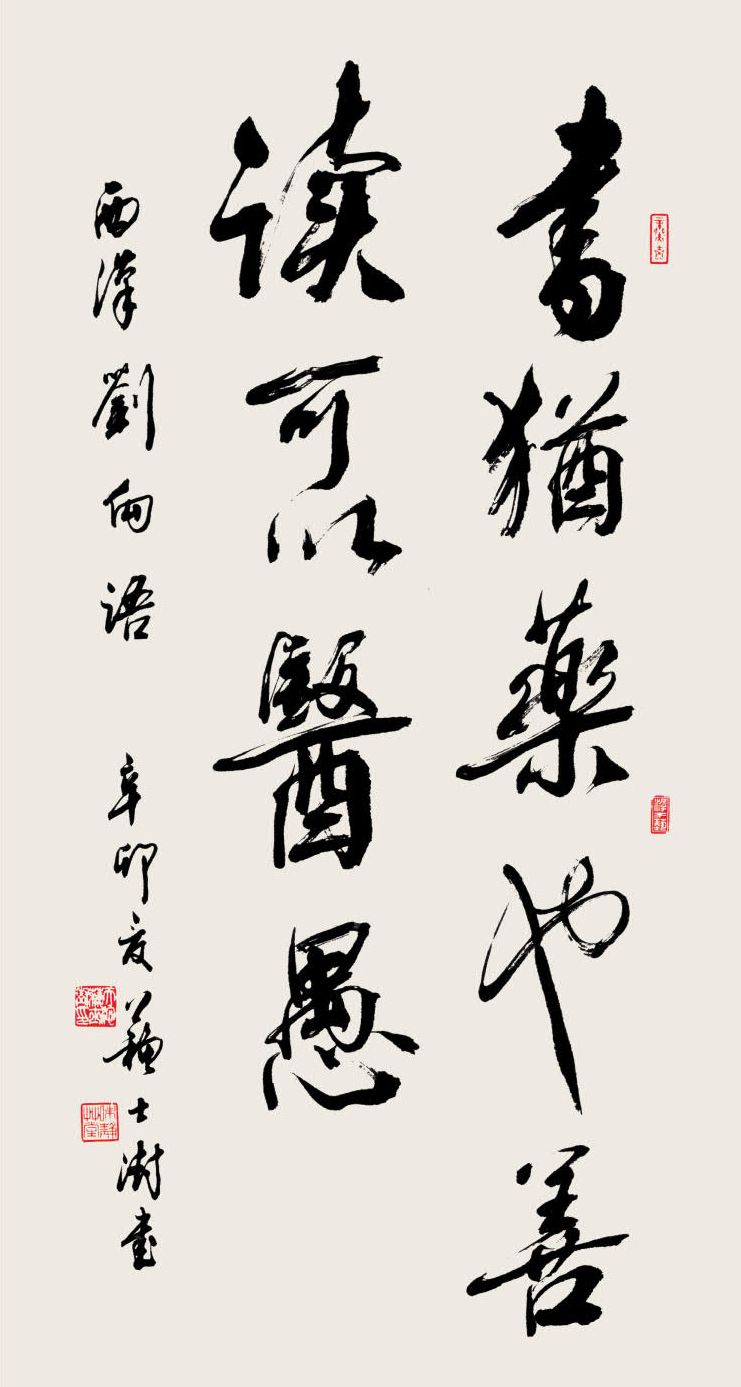 書猶藥也善
读可以醫愚
西漢劉向语
辛卯夏蘇士澍书